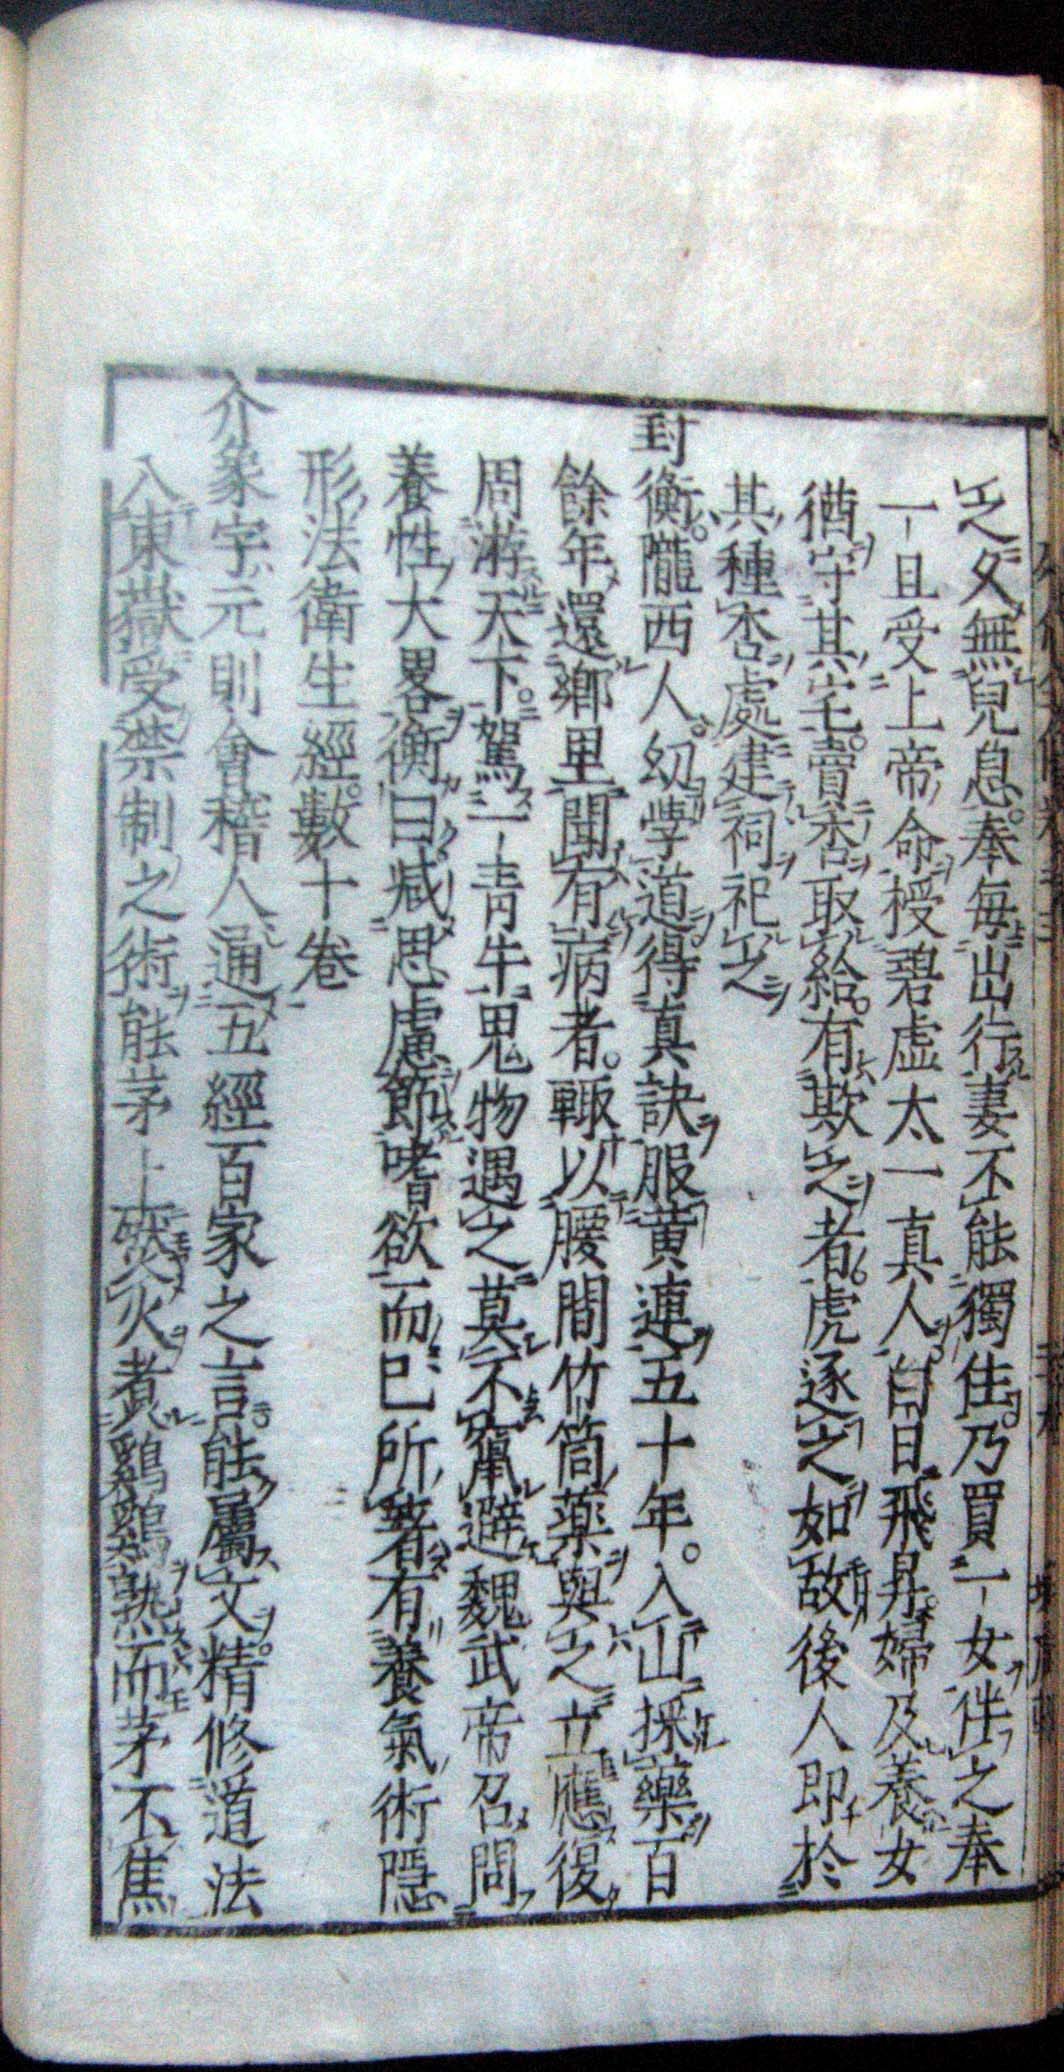 之久無兒息。奉每出行妻不能獨住。乃買一女伴之奉
一旦受上帝命授碧虛太一真人。白日飛昇。婦及養女
猶守其宅。賣杏取給。有欺之者虎逐之如故後人即於
其種杏處建祠祀之
封衡。隴西人。幼學道得真訣服黃連五十年。入山採藥百
餘年還鄉里聞有病者。輙以腰間竹筒藥與之立應復
周游天下。駕一青牛鬼物遇之莫不竄避魏武帝召問
養性大畧衡曰减思慮節嗜欲而已所著有養氣術隱
形法衛生經。數十卷
介象字元則會稽人通五經百家之言能屬文。精修道法
入東嶽受禁制之術能茅上㷊火煮鷄鷄熟而茅不焦